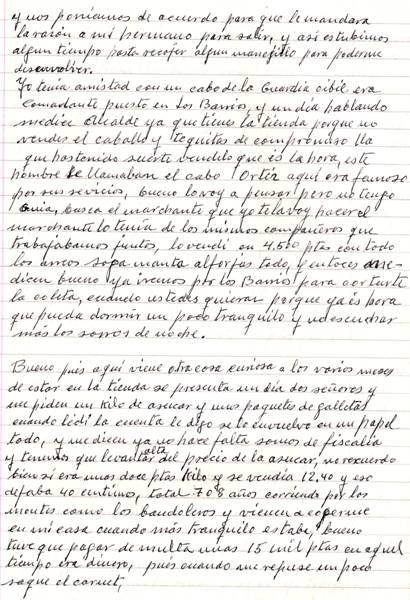 y nos poniamos de acuerdo para que le mandara
la razón a mi hermano para salir, y asi estubimos
algun tiempo hasta recojer algun manejillo para poderme
desenvolver.
Yo tenia amistad con un cabo de la Guardia cibil era
Comandante puesto en Los Barrios, y un dia hablando
me dice Alcalde ya que tienes la tienda porque no
vendes el caballo y te quitas de compromiso lla
que has tenido suerte vendelo que és la hora, este
hombre se llamaban el cabo Ortiz aqui era famoso
por sus sevicios, bueno lo voy a pensar pero no tengo
Guia, busca el marchante que yo te la voy hacer el
marchante lo tenia de los mismos compañeros que
trabajabamos juntos, lo vendi en 4.500 ptas con todo
los arreos soga manta alforjas todo, y entoces me
dicen bueno ya iremos por los Barrios para cortarte
la coleta, cuando ustedes quieran porque ya és hora
que pueda dormir un poco tranquilo y no escuchar
más los sorros de noche.
Bueno pués aqui viene otra cosa curiosa a los varios meses
de estar en la tienda se presenta un dia dos señores y
me piden un Kilo de asucar y unos paquetes de galletas
cuando le di la cuenta le digo se lo envuelvo en un papel
todo, y me dicen ya no hace falta somos de fiscalia
y tenemos que levantar alta del precio de la asucar, no recuerdo
bien si era unas doce ptas Kilo y se vendia 12.40 y eso
dejaba 40 centimos, total 7 o 8 años corriendo por los
montes como los bandoleros y vienen a cojerme
en mi casa cuando más tranquilo estaba, bueno
tuve que pagar de multa unas 15 mil ptas en aquel
tiempo era dinero, pués cuando me repuse un poco
saque el carnet,